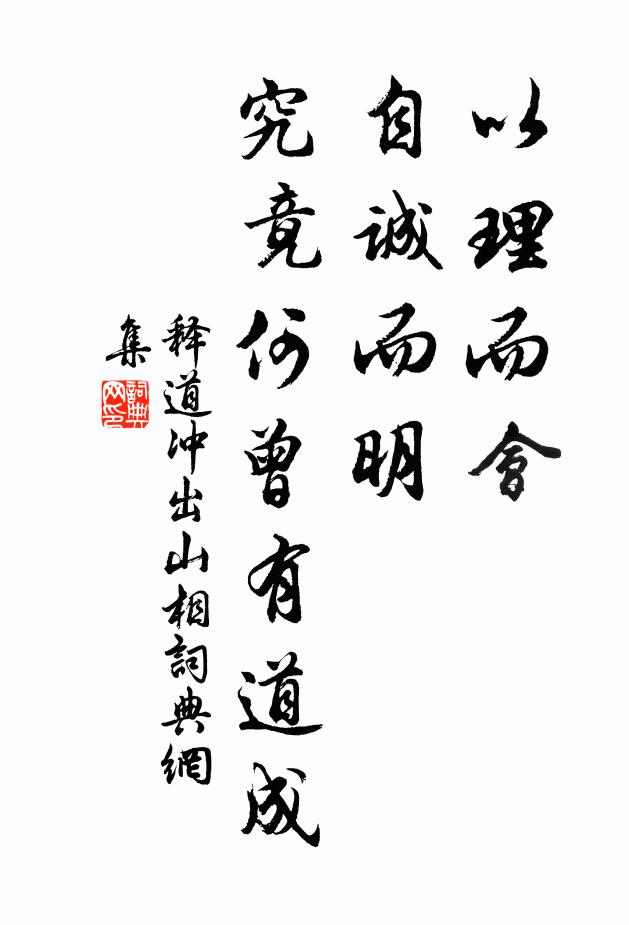 以理而會
自誠而明
究竟何曾有道成
释道冲出山相詞典網
集
詞典
网印